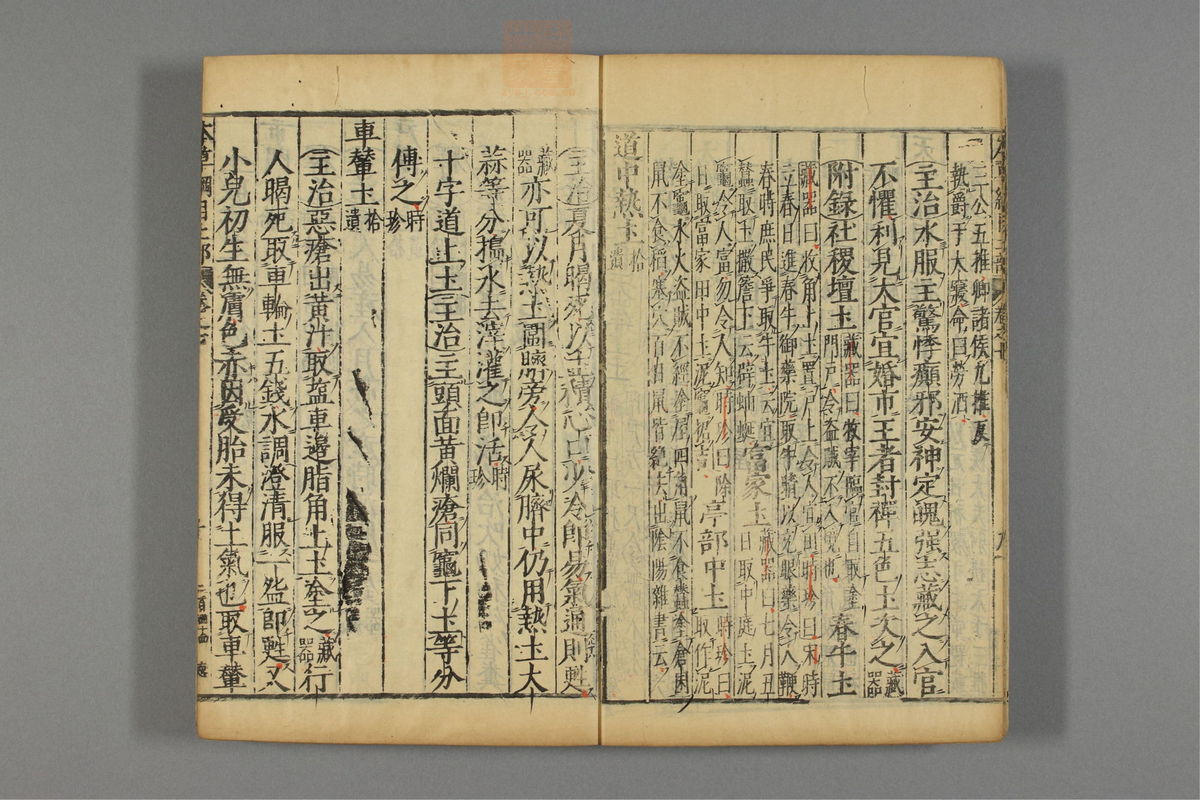 三公五推卿諸侯九推反
執爵于大寢命曰勞酒
主治水服主驚悸癲邪安神定魄強志藏之入官
不懼利見大官宜婚市王者封禪五色土次之藏器
附錄社稷壇土藏器曰牧宰臨官自取塗門戶令盜賊不入境也春牛土
藏器曰收角上土置戶上令人宜田時珍曰宋時
立春日進春牛御藥院取牛睛以充眼藥今人鞭
春時庶民爭取牛土云宜
蠶取土撒簷下云辟蚰蜒富家土藏器曰七月丑日取中庭土泥
竈令人富勿令人知時珍曰除
日取富家田中土泥竈招吉亭部中土時珍曰取作泥
塗竈水火盜賊不經塗屋四角鼠不食蠶塗倉囷
鼠不食稻塞穴百日鼠皆絕去出陰陽雜書云
道中熱土拾遺
主治夏月暍死以土積心口少冷即易氣通則甦
藏器亦可以熱土圍臍旁令人尿臍中仍用熱土大
蒜等分搗水去滓灌之即活時珍
十字道上土主治主頭面黃爛瘡同竈下土等分
傅之時珍
車輦土拾遺
主治惡瘡出黃汁取鹽車邊脂角上土塗之藏器行
人暍死取車輪土五錢水調澄清服一盌即甦又
小兒初生無膚色赤因受胎未得土氣也取車輦
本草綱目土部